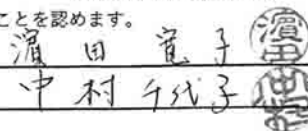 ことを認めます。
濱田寛子 濱田
中村千代子 中村